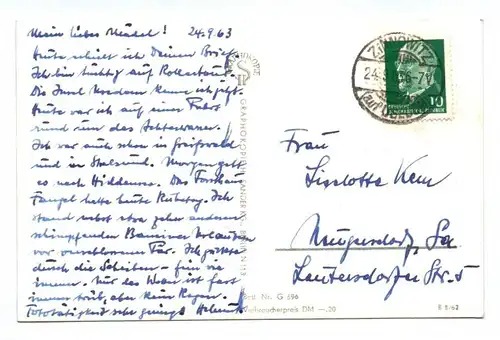 Mein liebes Mädel! 24.9.63
Heute erhielt ich Deinen Brief.
Ich bin tüchtig auf Rollertour.
Die Insel Usedom kenne ich jetzt.
Heute war ich auf einer Fahrt
rund um das Achterwasser.
Ich war auch schon in Greifswald
und in Stralsund. Morgen geht
es nach Hiddensee. Das Forsthaus
Fangel hatte heute Ruhetag. Ich
stand nebst etwa zehn anderen
schimpfenden Urlaubern
vor verschlossener Tür. Ich guckte
durch die Scheiben – fein wie
immer. Nur das Wetter ist fast
immer trüb, aber kein Regen.
Fototätigkeit sehr gering. Helmut
ZINNOWITZ
24.9.
10
Frau
Liselotte Kern
Neugersdorf, Sa
Lautersdorfer Str. 5
Best. Nr. G 696
Verbraucherpreis DM -.20